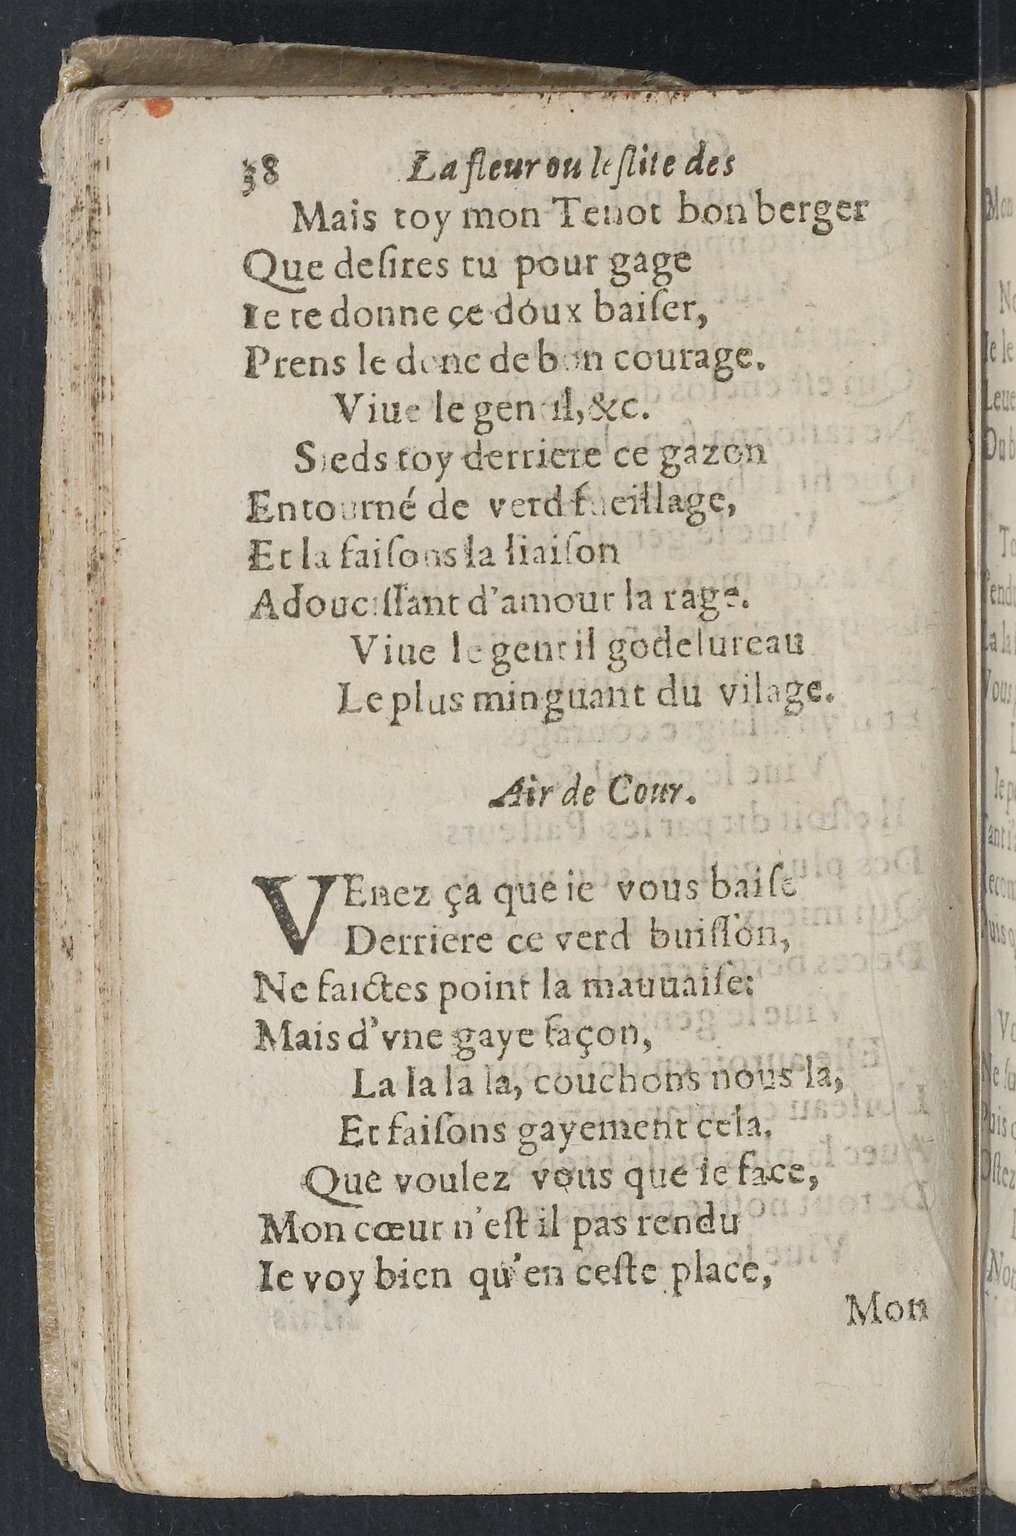 38 La fleur ou leslite des
Mais toy mon Tenot bon berger
Que deſires tu pour gage
Ie te donne çe doux baiſer,
Prens le donc de bon courage.
Viue le gentil, &c.
Sieds toy derriere ce gazon
Entourné de verd fueillage,
Et la faiſons la liaiſon
Adouciſſant d'amour la rage.
Viue le gentil godelureau
Le plus minguant du vilage.
Air de Cour.
VEnez ça que ie vous baiſe
Derriere ce verd buiſſon,
Ne faictes point la mauuaiſe:
Mais d'vne gaye façon,
La la la la, couchons nous la,
Et faiſons gayement cela.
Que voulez vous que ie face,
Mon cœur n'eſt il pas rendu
Ie voy bien qu'en ceſte place,
Mon